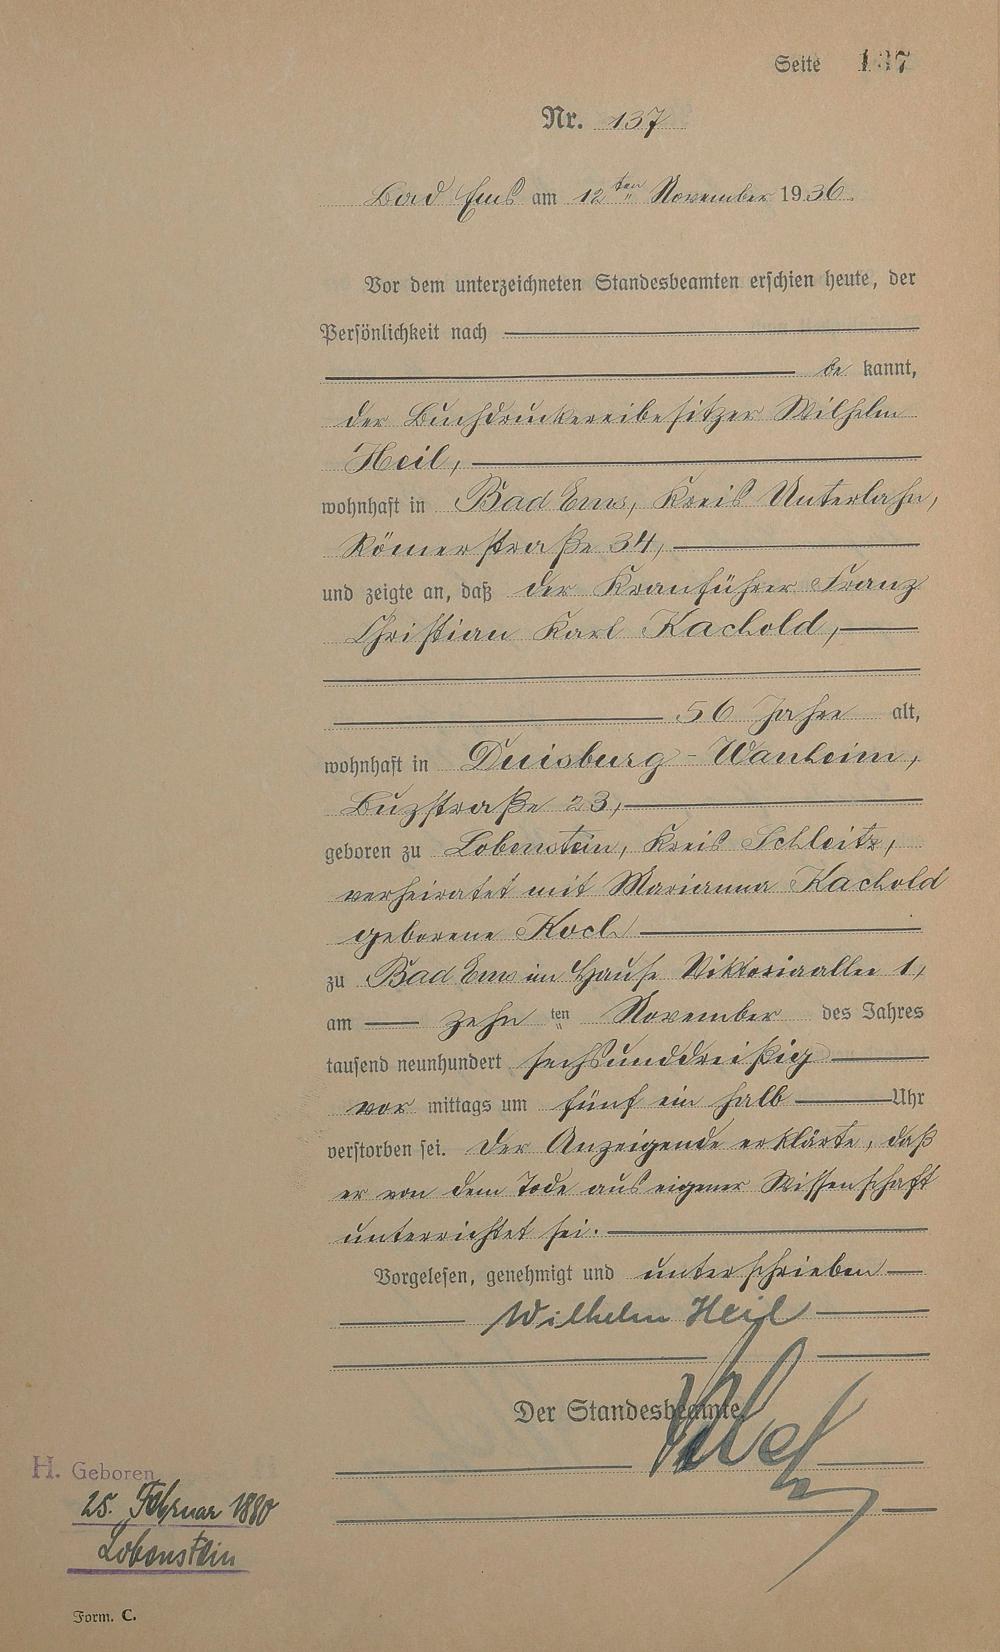 Seite 137
Nr. 137
Bad Ems am 12ten November 1936.
Vor dem unterzeichneten Standesbeamten erschien heute, der
Persönlichkeit nach
be kannt,
der Buchdruckereibesitzer Wilhelm
Heil,
wohnhaft in Bad Ems, Kreis Unterlahn,
Römerstraße 34,
und zeigte an, daß der Kranführer Franz
Christian Karl Kachold,
56 Jahre alt,
wohnhaft in Duisburg-Wanheim,
Buzstraße 23,
geboren zu Lobenstein, Kreis Schleitz,
verheiratet mit Marianna Kachold
geborene Koch
zu Bad Ems im Hause Viktoriaallee 1,
am zehn ten November des Jahres
tausend neunhundert sechsunddreißig
vor mittags um fünf ein halb Uhr
verstorben sei. Der Anzeigende erklärte, daß
er von dem Tode aus eigener Wissenschaft
unterrichtet sei.
Vorgelesen, genehmigt und unterschrieben
Wilhelm Heil
Der Standesbeamte
H. Geboren
25. Februar 1880
Lobenstein
Form. C.